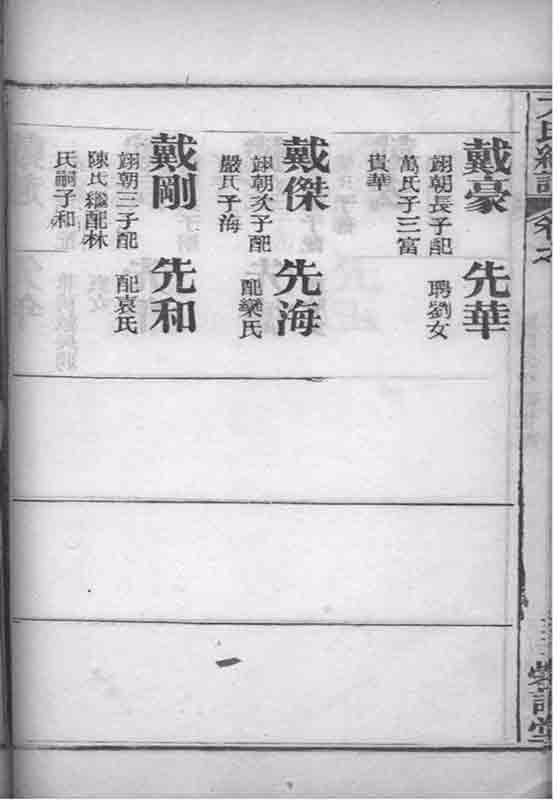 戴豪
翊朝長子配
萬氏子三富
貴華
先華
聘劉女
戴傑
翊朝次子配
嚴氏子海
先海
配欒氏
戴剛
翊朝三子配
陳氏繼配林
氏嗣子和
先和
配袁氏